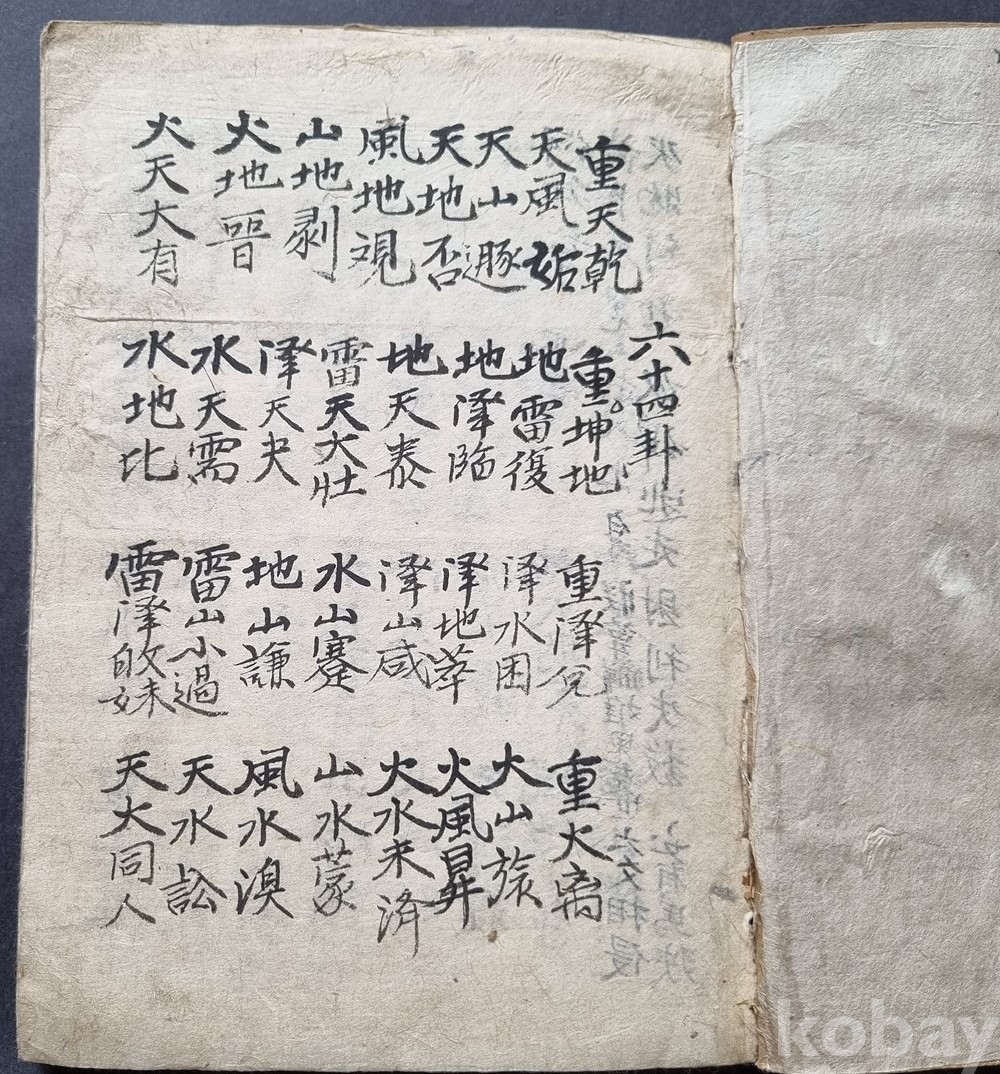 六十四卦
重天乾
天風姤
天山遯
天地否
風地覌
山地剥
火地晋
火天大有
重坤地
地雷復
地澤臨
地天泰
雷天大壯
澤天夬
水天需
水地比
重澤兌
澤水困
澤地萃
澤山咸
水山蹇
地山謙
雷山小過
雷澤㱕妹
重火离
火山旅
火風鼎
火水未濟
山水蒙
風水渙
天水訟
天火同人
kobay